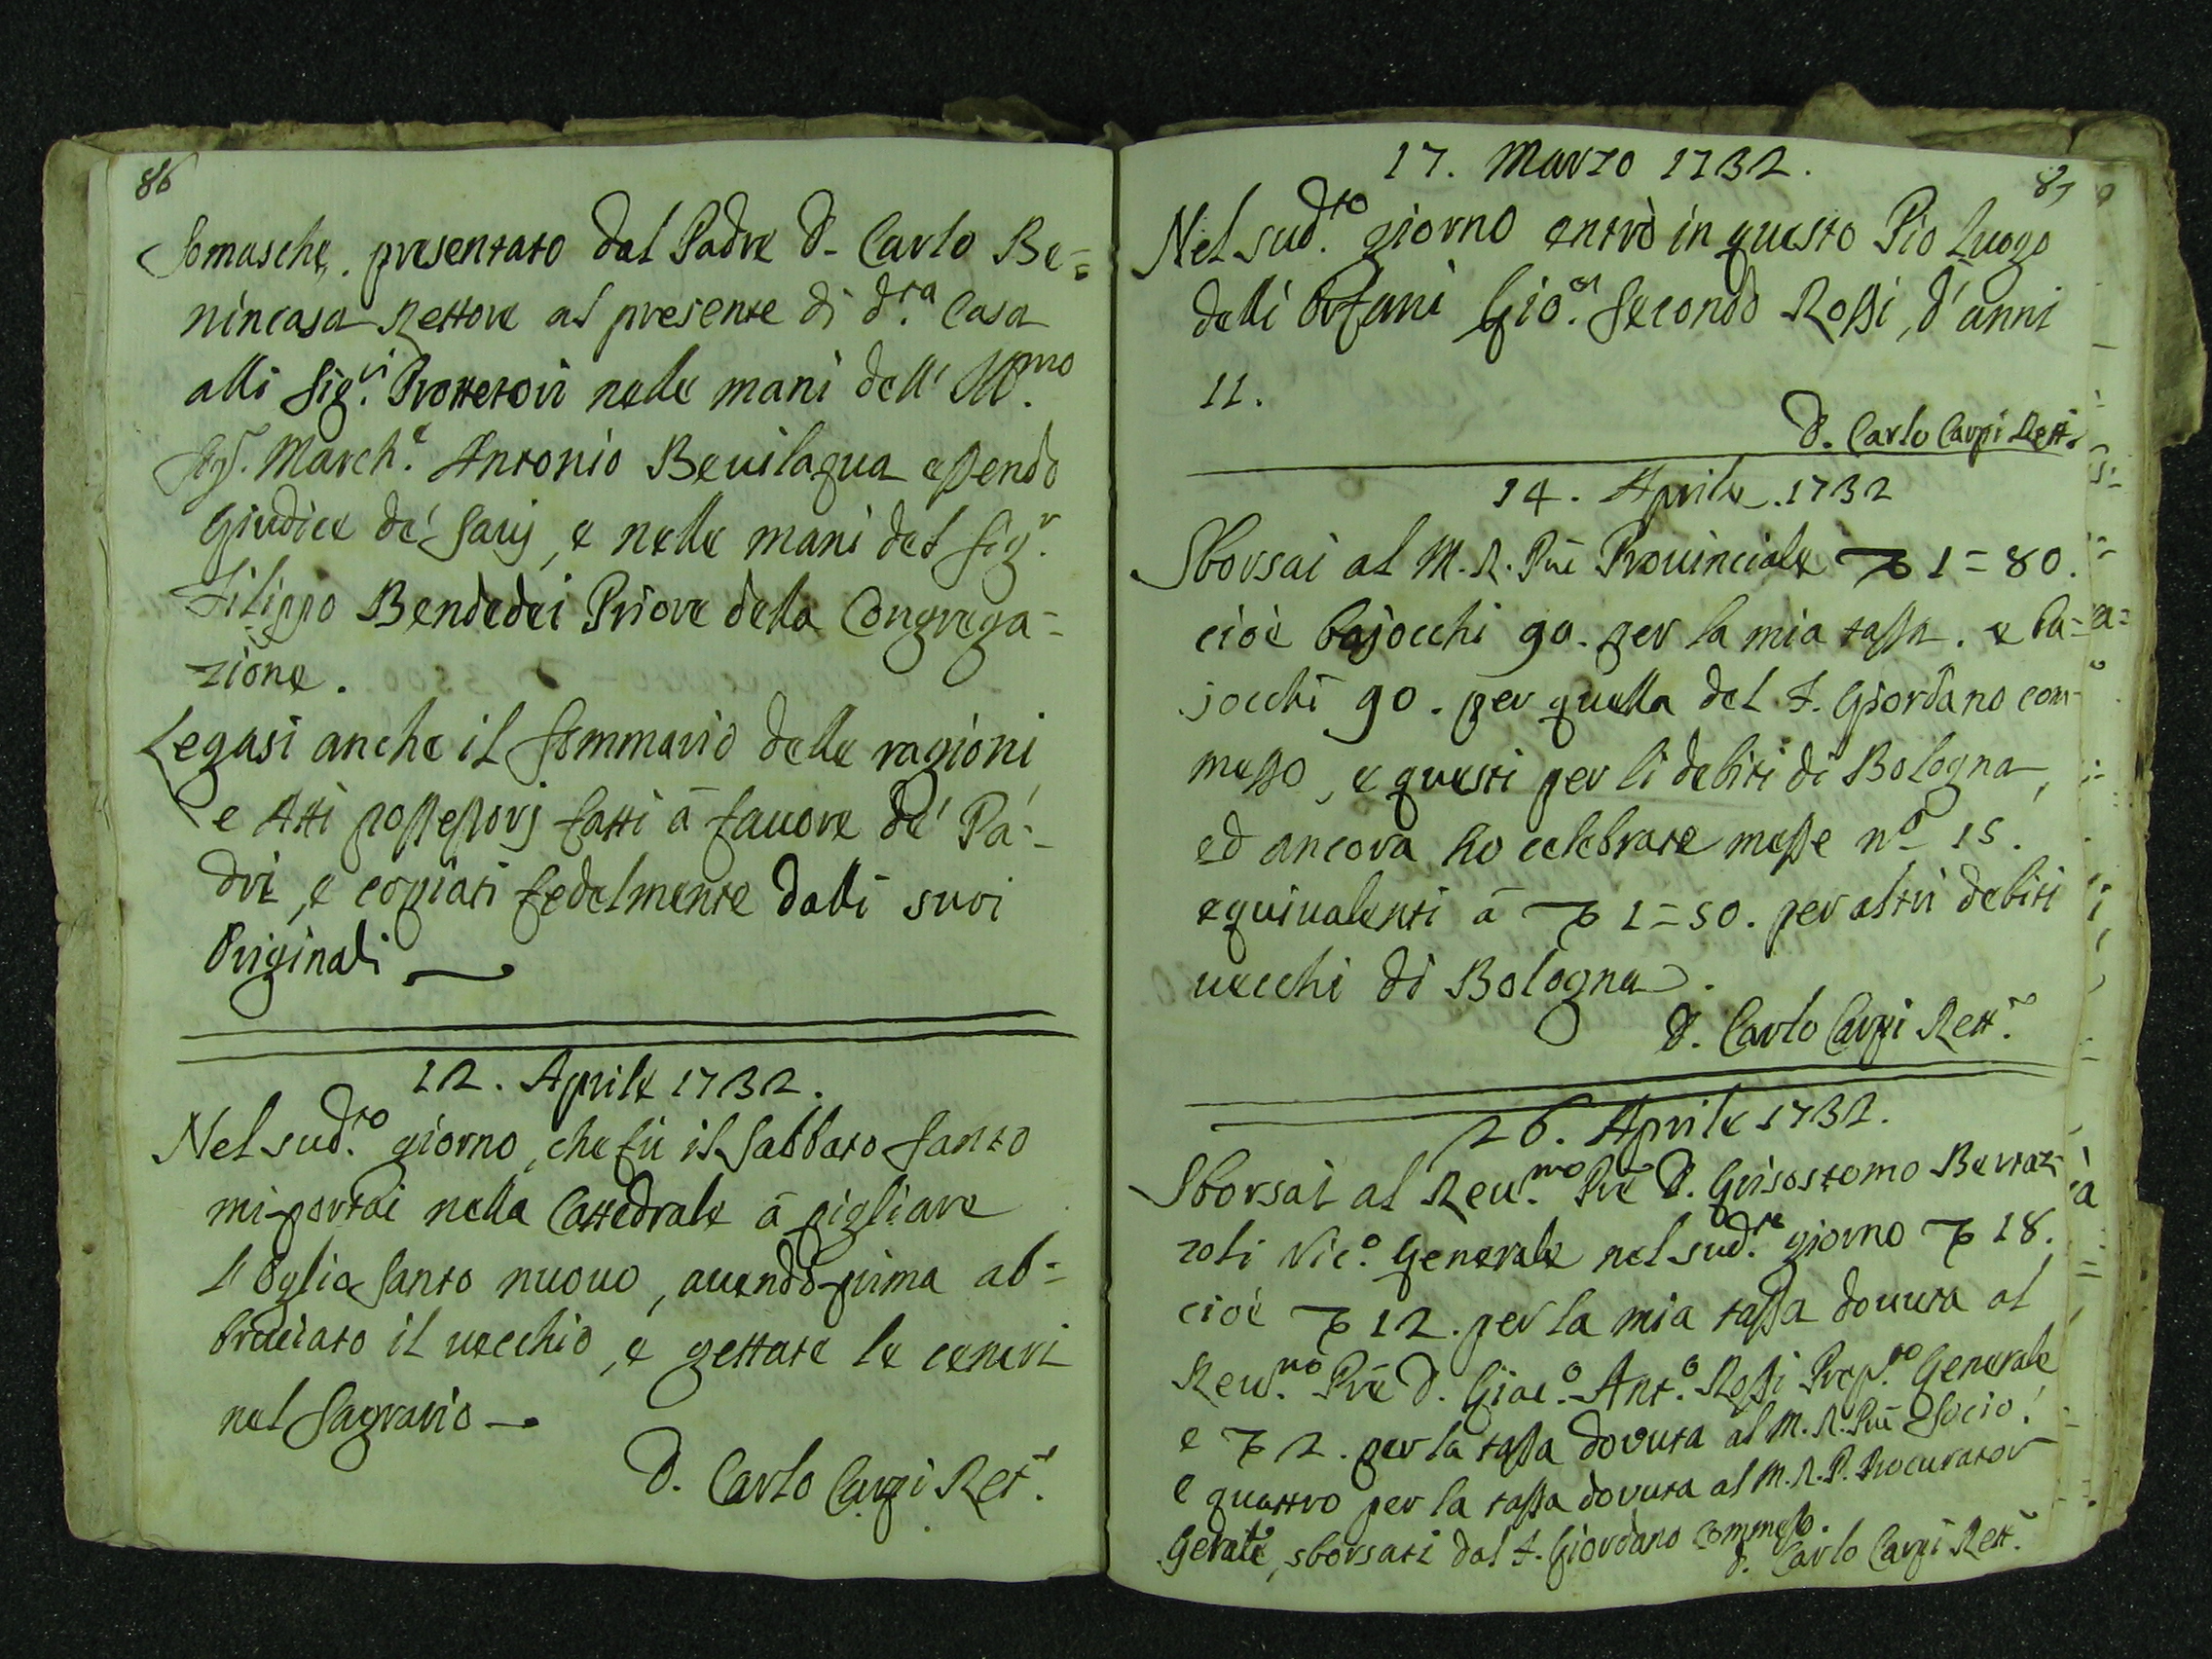 86
Somasche. presentato dal Padre D. Carlo Be=
nincasa Rettore al presente di d.ta Casa
alli Sig.ri Prottetori nelle mani dell' Ill.mo
Sig.r March.e Antonio Beuilaqua essendo
Giudice de' Sauj, e nelle mani del Sig.r
Filippo Bendedei Priore della Congrega=
zione.
Legasi anche il Sommario delle ragioni
e Atti possessorj fatti à fauore de' Pa=
dri, e copiati fedelmente dalli suoi
Originali
12. Aprile 1732.
Nel sud.to giorno, che fù il Sabbato Santo
mi portai nella Cattedrale à pigliare
l'Oglio Santo nuouo, auendo prima ab=
bruciato il uecchio, e gettate le ceneri
nel Sagrario
D. Carlo Carpi Ret.e
17. Marzo 1732.
87
Nel sud.to giorno entrò in questo Pio Luogo
delli Orfani Gio. Secondo Rossi, d'anni
11.
D. Carlo Carpi Rett.
14. Aprile. 1732
Sborsai al M. R. Pre Prouinciale 1=80.
cioè bajocchi 90. per la mia tassa. e ba=
jocchi 90. per quella del F. Giordano com=
messo, e questi per li debiti di Bologna,
ed ancora ho celebrate messe n.o 15.
equiualenti à 1=50. per altri debiti
uecchi di Bologna.
D. Carlo Carpi Rett.e
26. Aprile 1732.
Sborsai al Reu.mo Pre D. Grisostomo Bertaz=
zoli Vic.o Generale nel sud.to giorno 18.
cioè 12. per la mia tassa douuta al
Reu.mo Pre D. Giac.o Ant.o Rossi Prep.to Generale
e 2. per la tassa dovuta al M. R. Pre Socio,
e quattro per la tassa dovuta al M. R. P. Procurator
Gerale, sborsati dal F. Giordano Commesso.
D. Carlo Carpi Rett.e